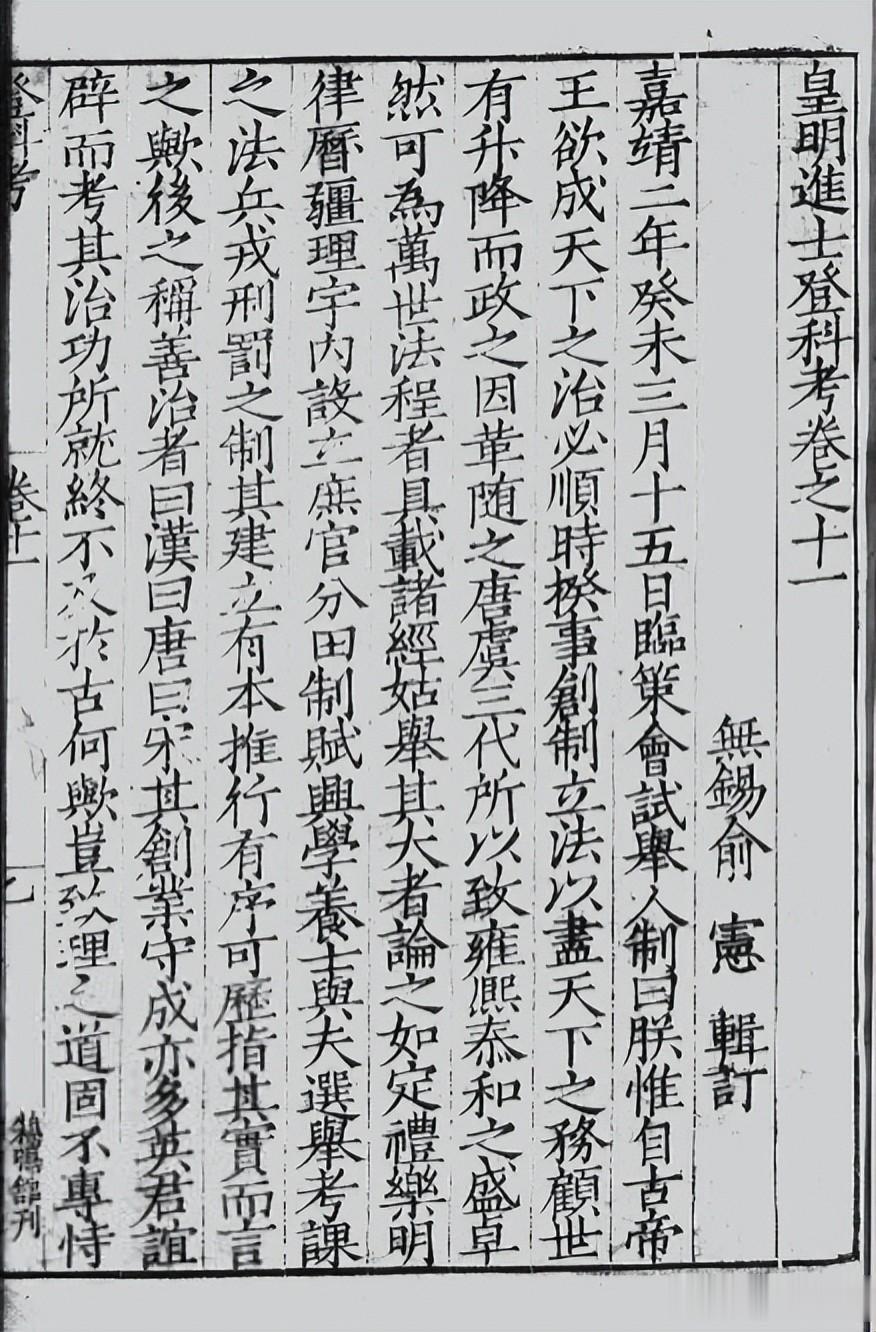 皇明進士登科考卷之十一
無錫俞憲輯訂
嘉靖二年癸未三月十五日臨策會試舉人制曰朕惟自古帝
王欲成天下之治必順時揆事創制立法以盡天下之務顧世
有升降而政之因革随之唐虞三代所以致雍熙泰和之盛卓
然可為萬世法程者具載諸經姑舉其大者論之如定禮樂明
律曆疆理宇內設立庶官分田制賦興學養士與夫選舉考課
之法兵戎刑罰之制其建立有本推行有序可歷指其實而言
之歟後之稱善治者曰漢曰唐曰宋其創業守成亦多英君誼
辟而考其治功所就終不及於古何歟豈致理之道固不專恃
登科考 卷十一 乙 鵝鳴館刊